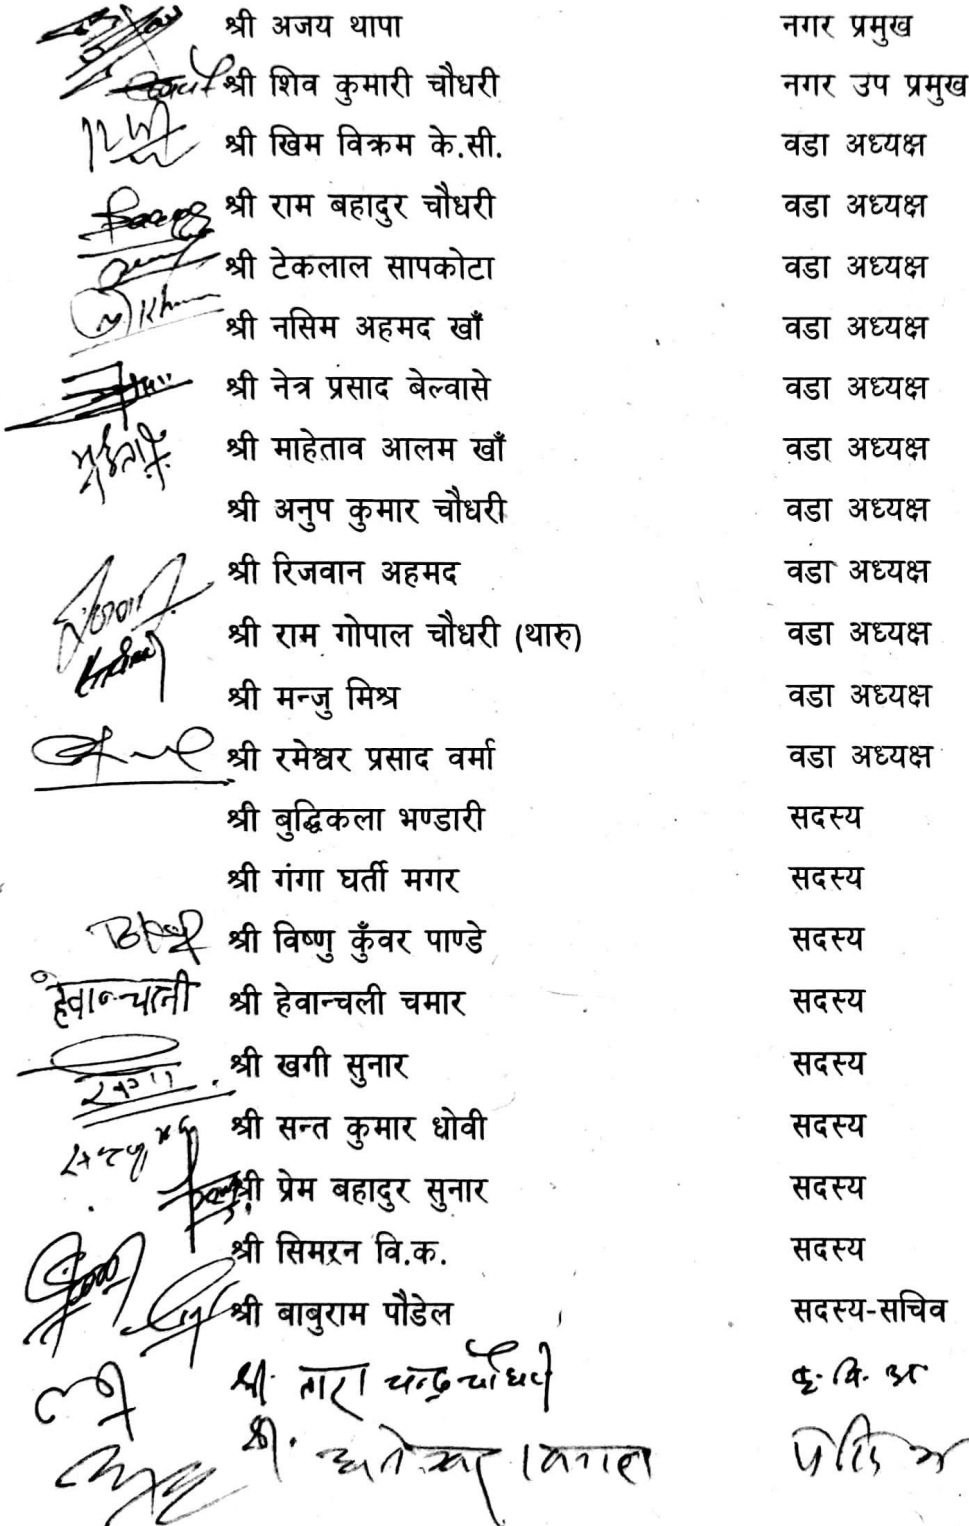 श्री अजय थापा नगर प्रमुख
श्री शिव कुमारी चौधरी नगर उप प्रमुख
श्री खिम विक्रम के.सी. वडा अध्यक्ष
श्री राम बहादुर चौधरी वडा अध्यक्ष
श्री टेकलाल सापकोटा वडा अध्यक्ष
श्री नसिम अहमद खाँ वडा अध्यक्ष
श्री नेत्र प्रसाद बेल्वासे वडा अध्यक्ष
श्री माहेताव आलम खाँ वडा अध्यक्ष
श्री अनुप कुमार चौधरी वडा अध्यक्ष
श्री रिजवान अहमद वडा अध्यक्ष
श्री राम गोपाल चौधरी (थारु) वडा अध्यक्ष
श्री मन्जु मिश्र वडा अध्यक्ष
श्री रमेश्वर प्रसाद वर्मा वडा अध्यक्ष
श्री बुद्धिकला भण्डारी सदस्य
श्री गंगा घर्ती मगर सदस्य
श्री विष्णु कुँवर पाण्डे सदस्य
श्री हेवान्चली चमार सदस्य
श्री खगी सुनार सदस्य
श्री सन्त कुमार धोवी सदस्य
श्री प्रेम बहादुर सुनार सदस्य
श्री सिमरन वि.क. सदस्य
श्री बाबुराम पौडेल सदस्य-सचिव
श्री. तारा चन्द्र चौधरी
श्री.